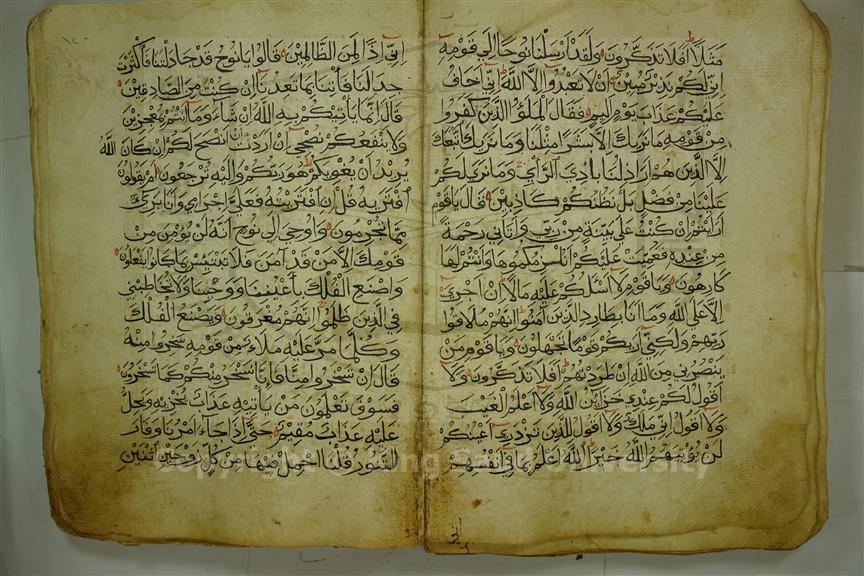 مَثَلًا أَفَلَا تَذَكَّرُونَ وَلَقَدْ أَرْسَلْنَا نُوحًا إِلَى قَوْمِهِ
إِنِّي لَكُمْ نَذِيرٌ مُبِينٌ أَنْ لَا تَعْبُدُوا إِلَّا اللَّهَ إِنِّي أَخَافُ
عَلَيْكُمْ عَذَابَ يَوْمٍ أَلِيمٍ فَقَالَ الْمَلَأُ الَّذِينَ كَفَرُوا
مِنْ قَوْمِهِ مَا نَرَيكَ إِلَّا بَشَرًا مِثْلَنَا وَمَا نَرَيكَ اتَّبَعَكَ
إِلَّا الَّذِينَ هُمْ أَرَاذِلُنَا بَادِيَ الرَّأْيِ وَمَا نَرَى لَكُمْ
عَلَيْنَا مِنْ فَضْلٍ بَلْ نَظُنُّكُمْ كَاذِبِينَ قَالَ يَا قَوْمِ
أَرَأَيْتُمْ إِنْ كُنْتُ عَلَى بَيِّنَةٍ مِنْ رَبِّي وَآتَانِي رَحْمَةً
مِنْ عِنْدِهِ فَعُمِّيَتْ عَلَيْكُمْ أَنُلْزِمُكُمُوهَا وَأَنْتُمْ لَهَا
كَارِهُونَ وَيَا قَوْمِ لَا أَسْئَلُكُمْ عَلَيْهِ مَالًا إِنْ أَجْرِيَ
إِلَّا عَلَى اللَّهِ وَمَا أَنَا بِطَارِدِ الَّذِينَ آمَنُوا إِنَّهُمْ مُلَاقُوا
رَبِّهِمْ وَلَكِنِّي أَرَيكُمْ قَوْمًا تَجْهَلُونَ وَيَا قَوْمِ مَنْ
يَنْصُرُنِي مِنَ اللَّهِ إِنْ طَرَدْتُهُمْ أَفَلَا تَذَكَّرُونَ وَلَا
أَقُولُ لَكُمْ عِنْدِي خَزَائِنُ اللَّهِ وَلَا أَعْلَمُ الْغَيْبَ
وَلَا أَقُولُ إِنِّي مَلَكٌ وَلَا أَقُولُ لِلَّذِينَ تَزْدَرِي أَعْيُنُكُمْ
لَنْ يُؤْتِيَهُمُ اللَّهُ خَيْرًا اللَّهُ أَعْلَمُ بِمَا فِي أَنْفُسِهِمْ
إني
إِنِّي إِذًا لَمِنَ الظَّالِمِينَ قَالُوا يَا نُوحُ قَدْ جَادَلْتَنَا فَأَكْثَرْتَ
جِدَالَنَا فَأْتِنَا بِمَا تَعِدُنَا إِنْ كُنْتَ مِنَ الصَّادِقِينَ
قَالَ إِنَّمَا يَأْتِيكُمْ بِهِ اللَّهُ إِنْ شَاءَ وَمَا أَنْتُمْ بِمُعْجِزِينَ
وَلَا يَنْفَعُكُمْ نُصْحِي إِنْ أَرَدْتُ أَنْ أَنْصَحَ لَكُمْ إِنْ كَانَ اللَّهُ
يُرِيدُ أَنْ يُغْوِيَكُمْ هُوَ رَبُّكُمْ وَإِلَيْهِ تُرْجَعُونَ أَمْ يَقُولُونَ
افْتَرَيهُ قُلْ إِنِ افْتَرَيْتُهُ فَعَلَيَّ إِجْرَامِي وَأَنَا بَرِيءٌ
مِمَّا تُجْرِمُونَ وَأُوحِيَ إِلَى نُوحٍ أَنَّهُ لَنْ يُؤْمِنَ مِنْ
قَوْمِكَ إِلَّا مَنْ قَدْ آمَنَ فَلَا تَبْتَئِسْ بِمَا كَانُوا يَفْعَلُونَ
وَاصْنَعِ الْفُلْكَ بِأَعْيُنِنَا وَوَحْيِنَا وَلَا تُخَاطِبْنِي
فِي الَّذِينَ ظَلَمُوا إِنَّهُمْ مُغْرَقُونَ وَيَصْنَعُ الْفُلْكَ
وَكُلَّمَا مَرَّ عَلَيْهِ مَلَأٌ مِنْ قَوْمِهِ سَخِرُوا مِنْهُ
قَالَ إِنْ تَسْخَرُوا مِنَّا فَإِنَّا نَسْخَرُ مِنْكُمْ كَمَا تَسْخَرُونَ
فَسَوْفَ تَعْلَمُونَ مَنْ يَأْتِيهِ عَذَابٌ يُخْزِيهِ وَيَحِلُّ
عَلَيْهِ عَذَابٌ مُقِيمٌ حَتَّى إِذَا جَاءَ أَمْرُنَا وَفَارَ
التَّنُّورُ قُلْنَا احْمِلْ فِيهَا مِنْ كُلٍّ زَوْجَيْنِ اثْنَيْنِ